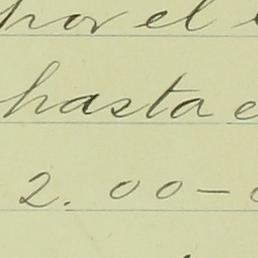 por el
hasta e
2.00-0